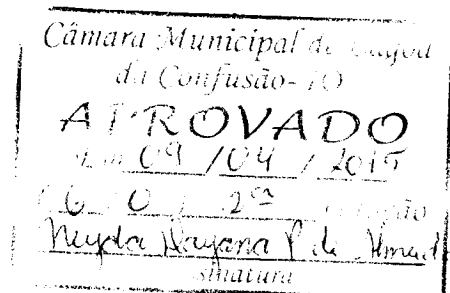 Câmara Municipal de Lagoa
da Confusão-TO
APROVADO
Em 09 / 04 / 2015
6 0 2ª votação
Neyda Nayana P de Almeida
sinatura